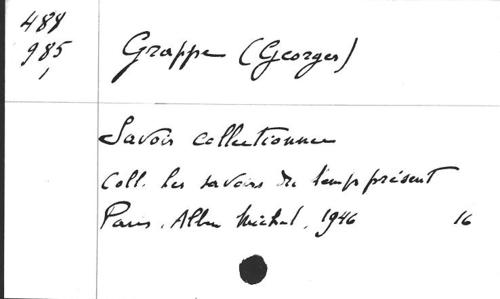 484
985
Grappe (Georges)
Savoir collectionner
Coll. les savoirs du temps présent
Paris, Albin Michel, 1946 16